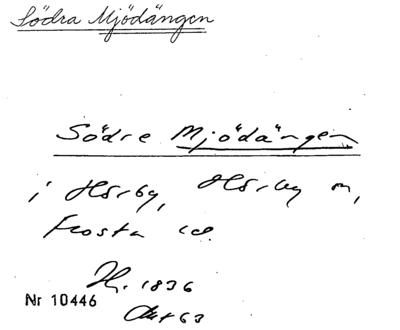 Södra Mjödängen
Södre Mjödängen
i Hörby, Hörby m,
Frosta
H. 1836
Nr 10446
Akt 63